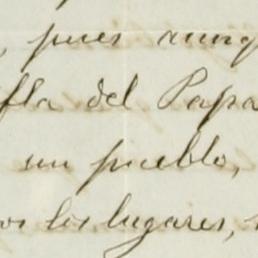 , pues aunq
fla del Papa
un pueblo,
os los lugares,